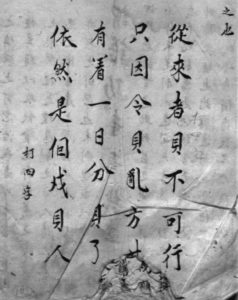 之也
從來者貝不可行
只因令貝亂方
有着一日分貝了
依然是個戎貝人
打四字